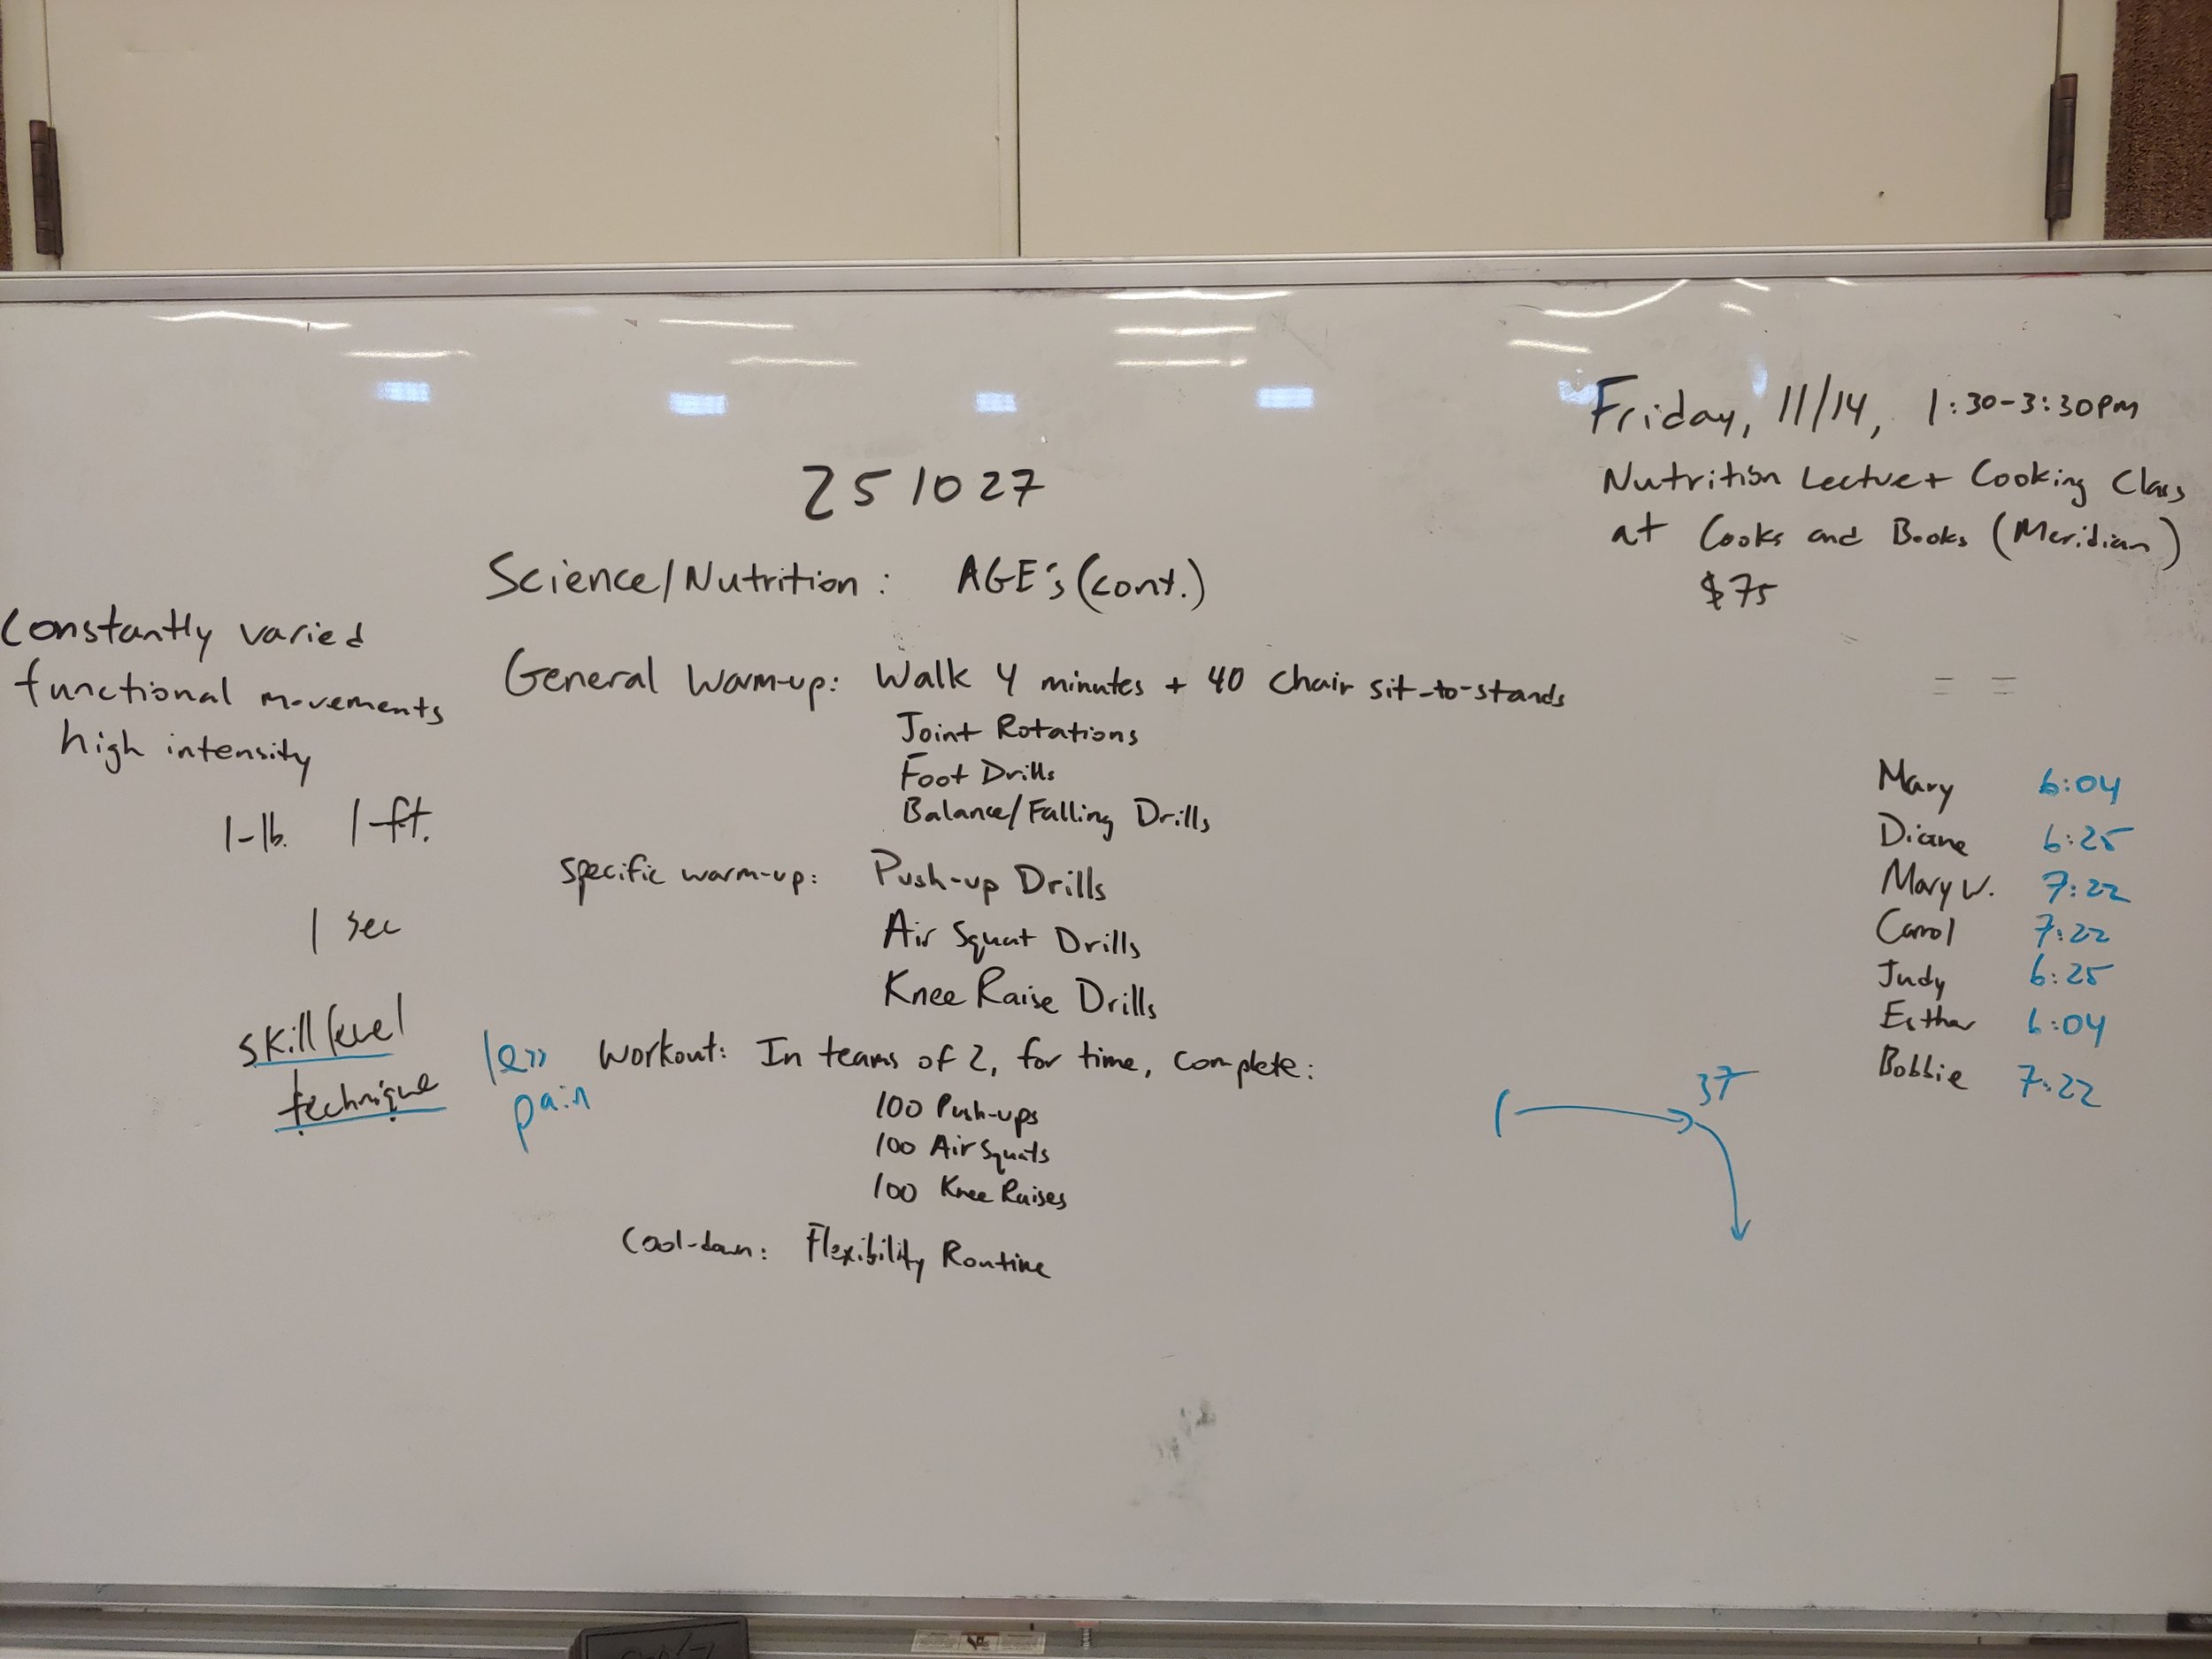 Friday, 11/14, 1:30-3:30pm
Nutrition Lecture + Cooking Class
at Cooks and Books (Meridian)
$75
251027
Science/Nutrition: AGE's (cont.)
Constantly varied
functional movements
high intensity
1-lb. 1-ft.
1 sec
skill level
technique
General Warm-up: Walk 4 minutes + 40 chair sit-to-stands
Joint Rotations
Foot Drills
Balance/Falling Drills
Specific warm-up: Push-up Drills
Air Squat Drills
Knee Raise Drills
less
pain
Workout: In teams of 2, for time, complete:
100 Push-ups
100 Air Squats
100 Knee Raises
Cool-down: Flexibility Routine
= =
Mary 6:04
Diane 6:25
Mary W. 7:22
Carol 7:22
Judy 6:25
Esther 6:04
Bobbie 7:22
37